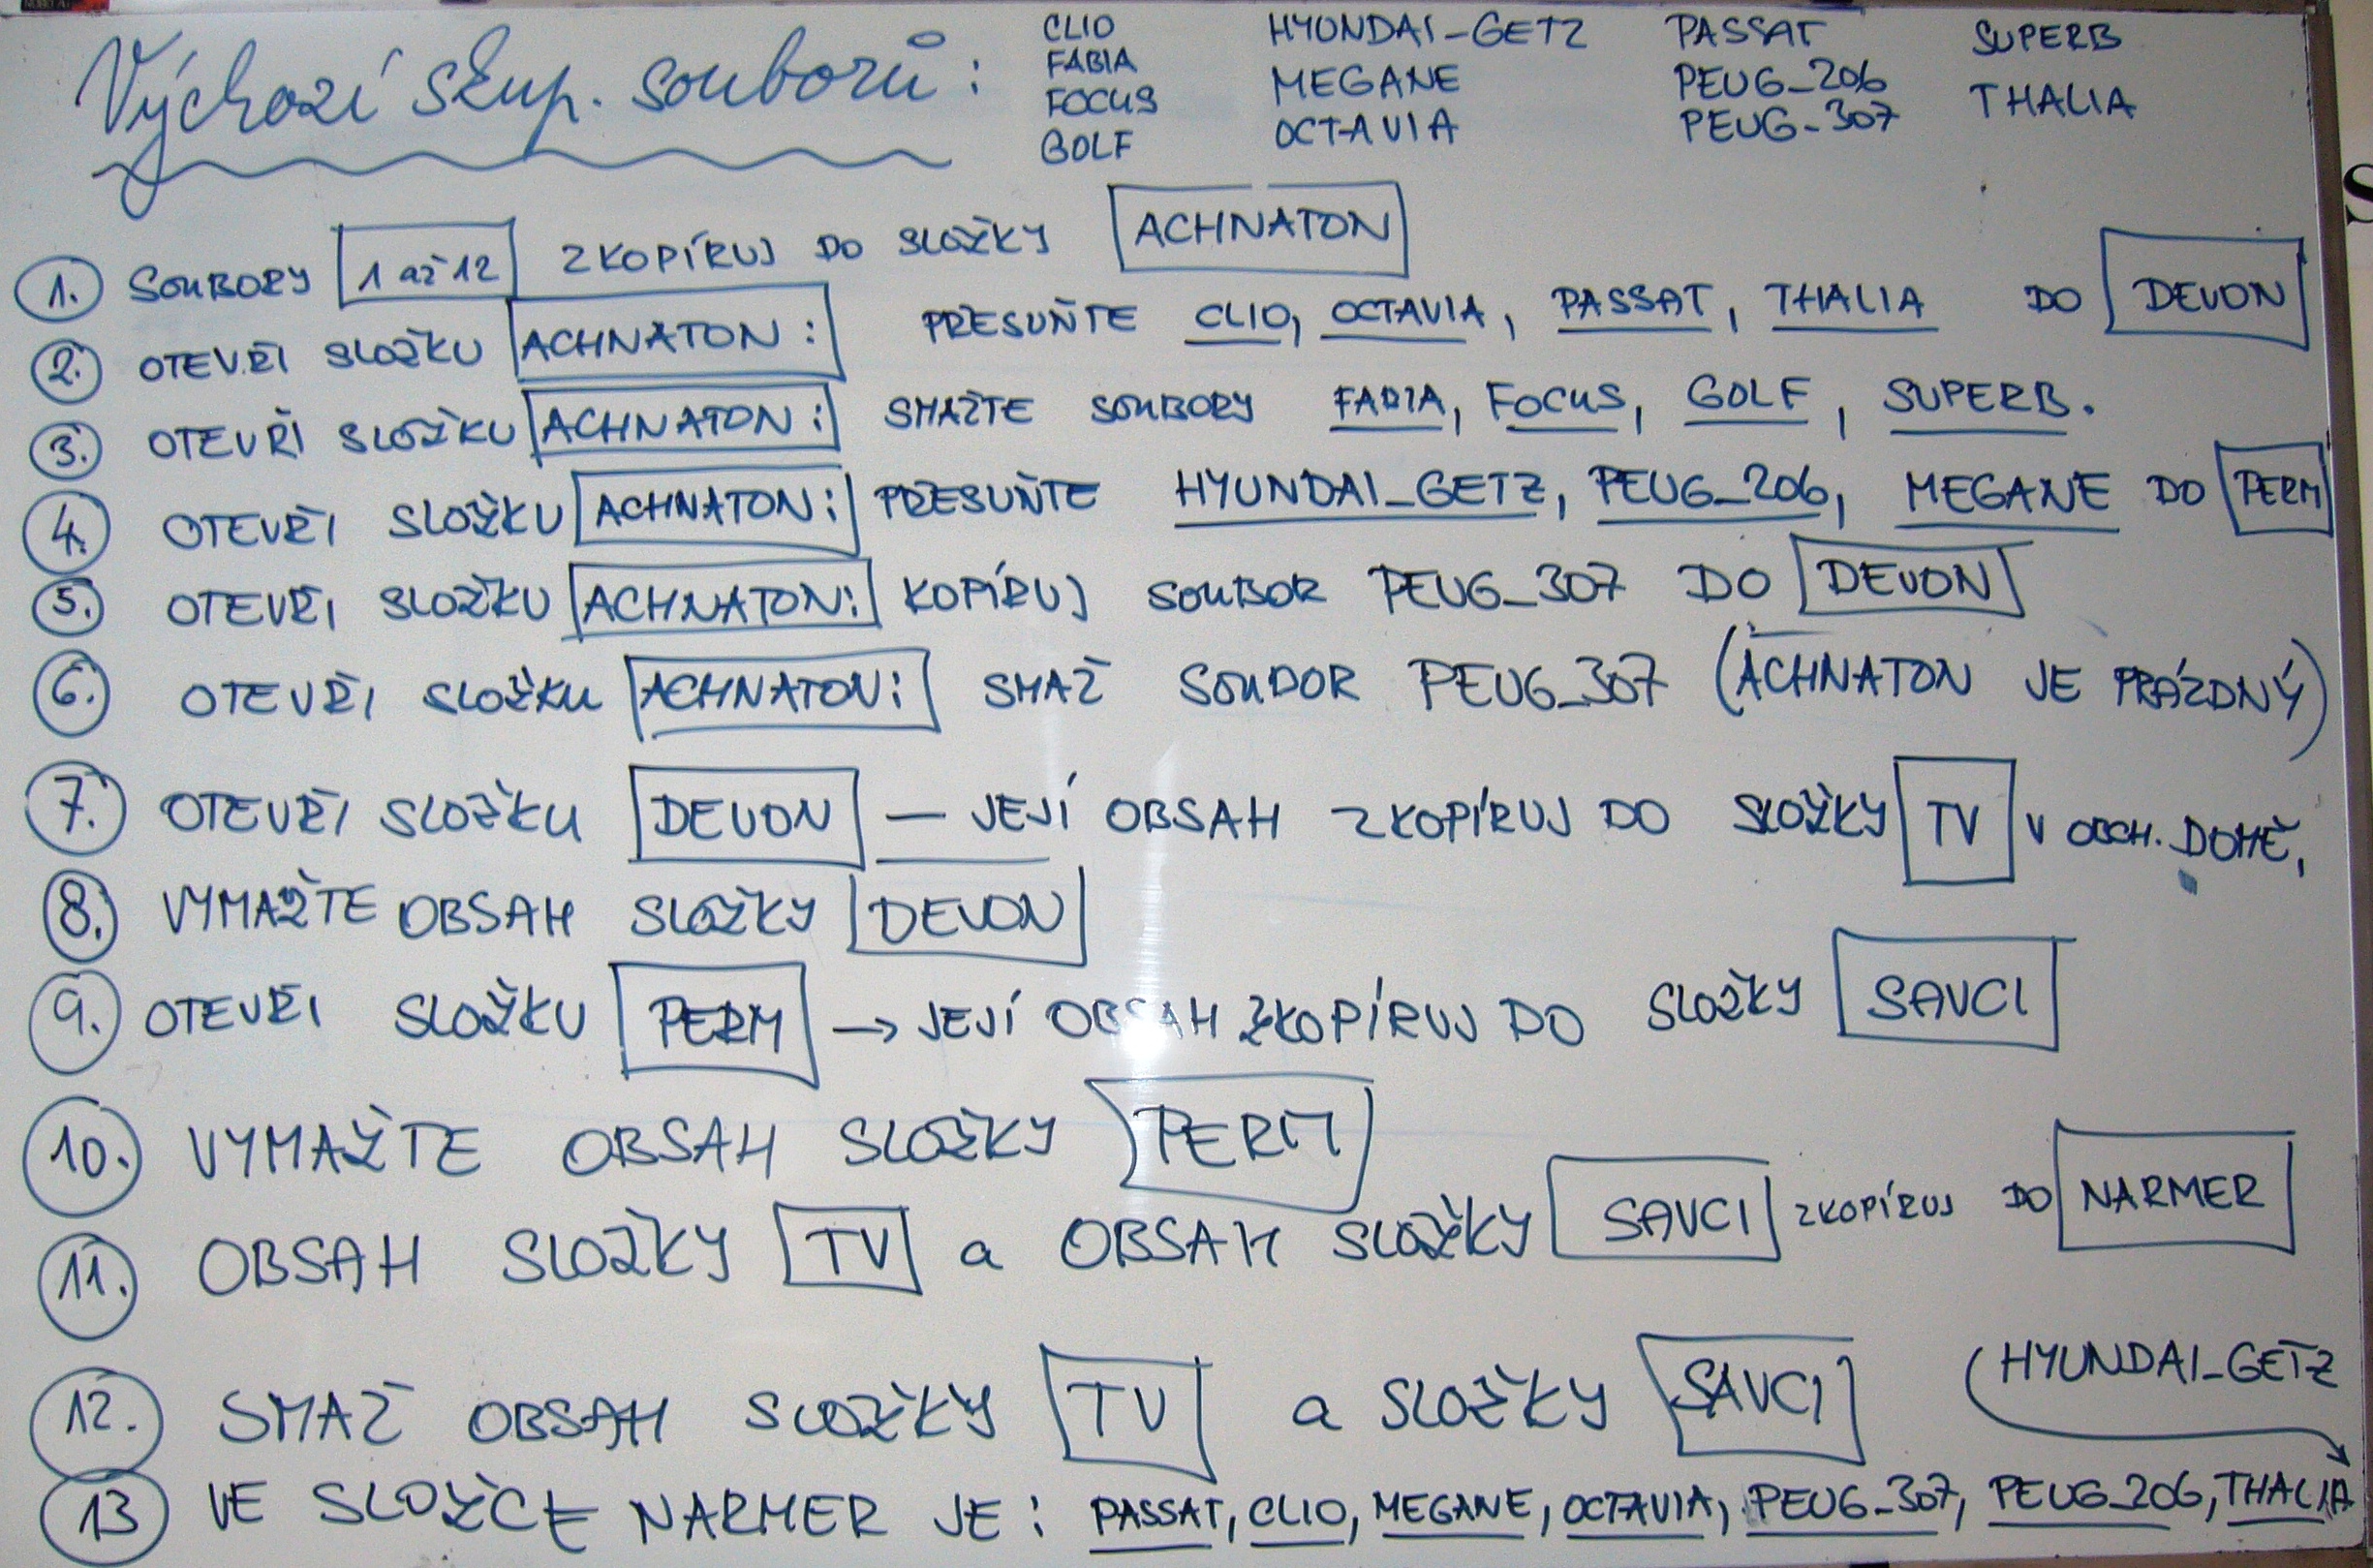 Výchozí skup. souborů:
CLIO HYUNDAI_GETZ PASSAT SUPERB
FABIA MEGANE PEUG_206 THALIA
FOCUS OCTAVIA PEUG_307
GOLF
1. SOUBORY 1 až 12 ZKOPÍRUJ DO SLOŽKY ACHNATON
2. OTEVŘI SLOŽKU ACHNATON: PŘESUŇTE CLIO, OCTAVIA, PASSAT, THALIA DO DEVON
3. OTEVŘI SLOŽKU ACHNATON: SMAŽTE SOUBORY FABIA, FOCUS, GOLF, SUPERB.
4. OTEVŘI SLOŽKU ACHNATON: PŘESUŇTE HYUNDAI_GETZ, PEUG_206, MEGANE DO PERM
5. OTEVŘI SLOŽKU ACHNATON: KOPÍRUJ SOUBOR PEUG_307 DO DEVON
6. OTEVŘI SLOŽKU ACHNATON: SMAŽ SOUBOR PEUG_307 (ACHNATON JE PRÁZDNÝ)
7. OTEVŘI SLOŽKU DEVON — JEJÍ OBSAH ZKOPÍRUJ DO SLOŽKY TV V OBCH. DOMĚ,
8. VYMAŽTE OBSAH SLOŽKY DEVON
9. OTEVŘI SLOŽKU PERM → JEJÍ OBSAH ZKOPÍRUJ DO SLOŽKY SAVCI
10. VYMAŽTE OBSAH SLOŽKY PERM
11. OBSAH SLOŽKY TV a OBSAH SLOŽKY SAVCI ZKOPÍRUJ DO NARMER
12. SMAŽ OBSAH SLOŽKY TV a SLOŽKY SAVCI
(HYUNDAI_GETZ
13 VE SLOŽCE NARMER JE: PASSAT, CLIO, MEGANE, OCTAVIA, PEUG_307, PEUG_206, THALIA